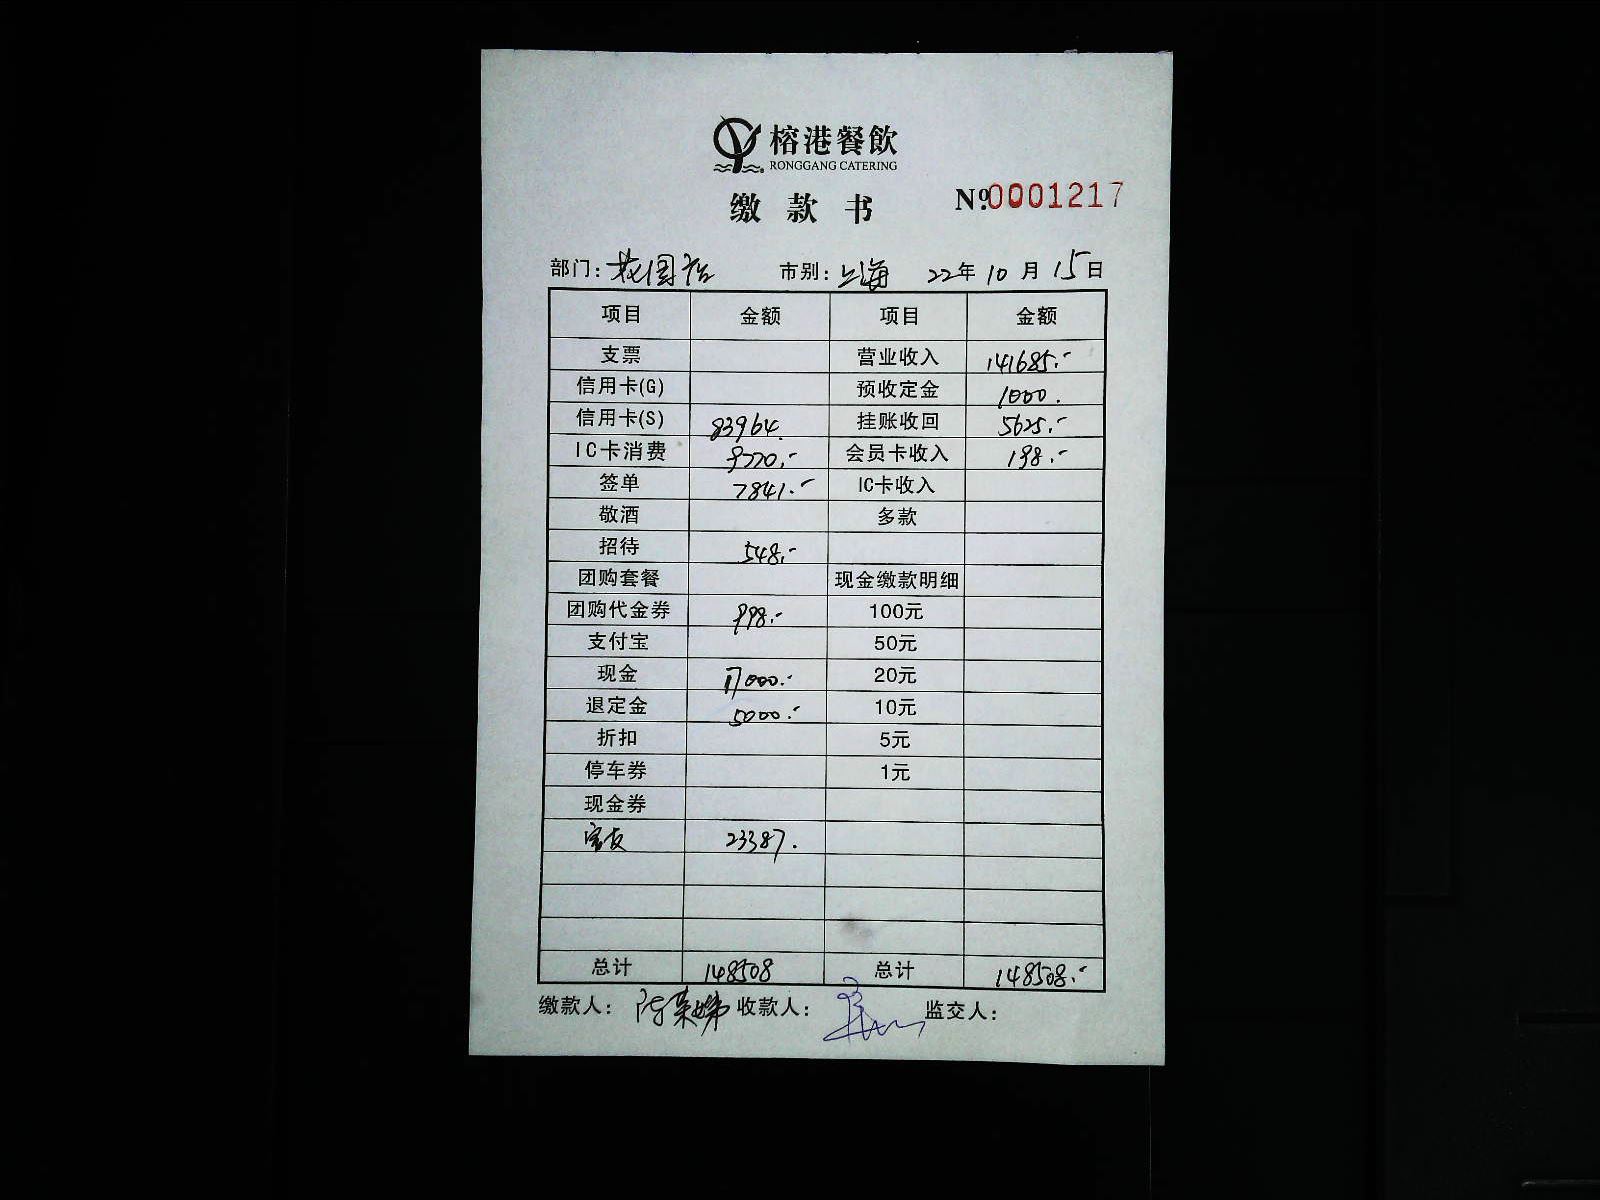 榕港餐飲
RONGGANG CATERING
缴款书 №0001217
部门：花园店 市别：上海 22年10月15日
项目 金额 项目 金额
支票 营业收入 141685.-
信用卡(G) 预收定金 1000.
信用卡(S) 83964. 挂账收回 5625.-
IC卡消费 9770.- 会员卡收入 198.-
签单 7841.- IC卡收入
敬酒 多款
招待 548.-
团购套餐 现金缴款明细
团购代金券 998.- 100元
支付宝 50元
现金 17000.- 20元
退定金 5000.- 10元
折扣 5元
停车券 1元
现金券
23387.
总计 148508 总计 148508.-
缴款人：陈荣娣 收款人： 监交人：